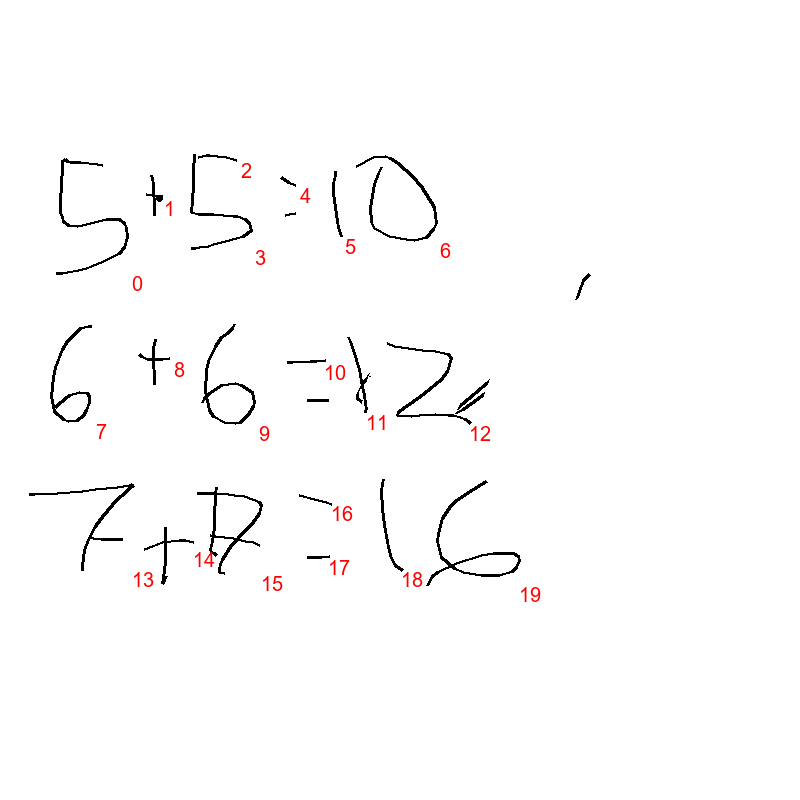 5 + 5 = 10
0 1 2 3 4 5 6
6 + 6 = 12
7 8 9 10 11 12
7 + 7 = 16
13 14 15 16 17 18 19